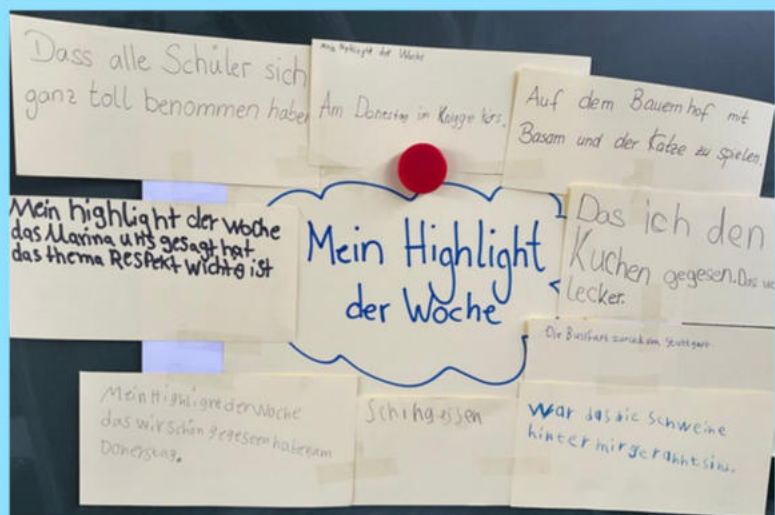 Dass alle Schüler sich
ganz toll benommen haben
Mein Highlight der Woche
Am Donestag im Knigge kurs.
Auf dem Bauernhof mit
Basam und der Katze zu spielen.
Mein highlight der woche
das Marina uns gesagt hat
das thema RESPEKT wichtig ist
Mein Highlight
der Woche
Das ich den
Kuchen gegesen. Das
lecker.
Die Busfahrt zurück
Stuttgart
Mein Highligt der Woche
das wir schön gegesen haben am
Donerstag.
Schön gessen
War das die Schweine
hinter mir gerahnt sind.